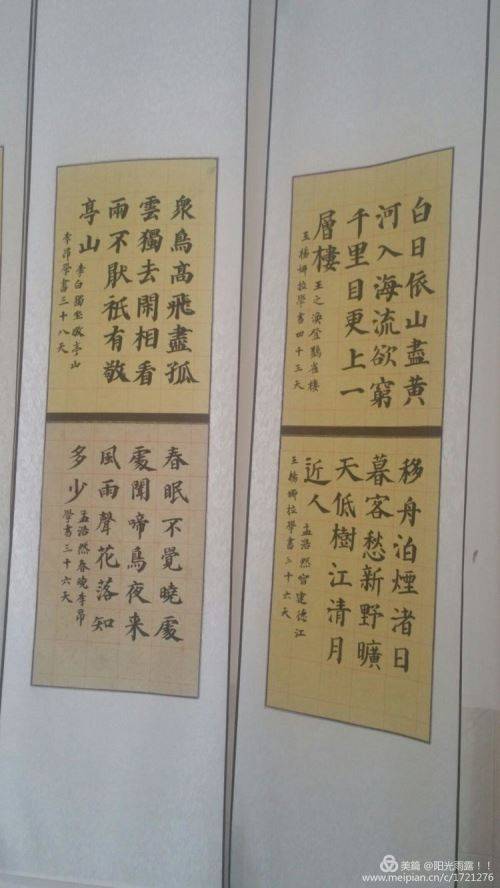 白日依山盡黄
河入海流欲窮
千里目更上一
層樓 王之渙登鸛雀樓
王楊娜拉學書四十三天
移舟泊煙渚日
暮客愁新野曠
天低樹江清月
近人 孟浩然宿建德江
王楊娜拉學書三十六天
衆鳥高飛盡孤
雲獨去閑相看
兩不厭祇有敬
亭山 李白獨坐敬亭山
李昂學書三十八天
春眠不覺曉處
處聞啼鳥夜来
風雨聲花落知
多少 孟浩然春曉李昂
學書三十六天
美篇 @阳光雨露！！
www.meipian.cn/c/1721276